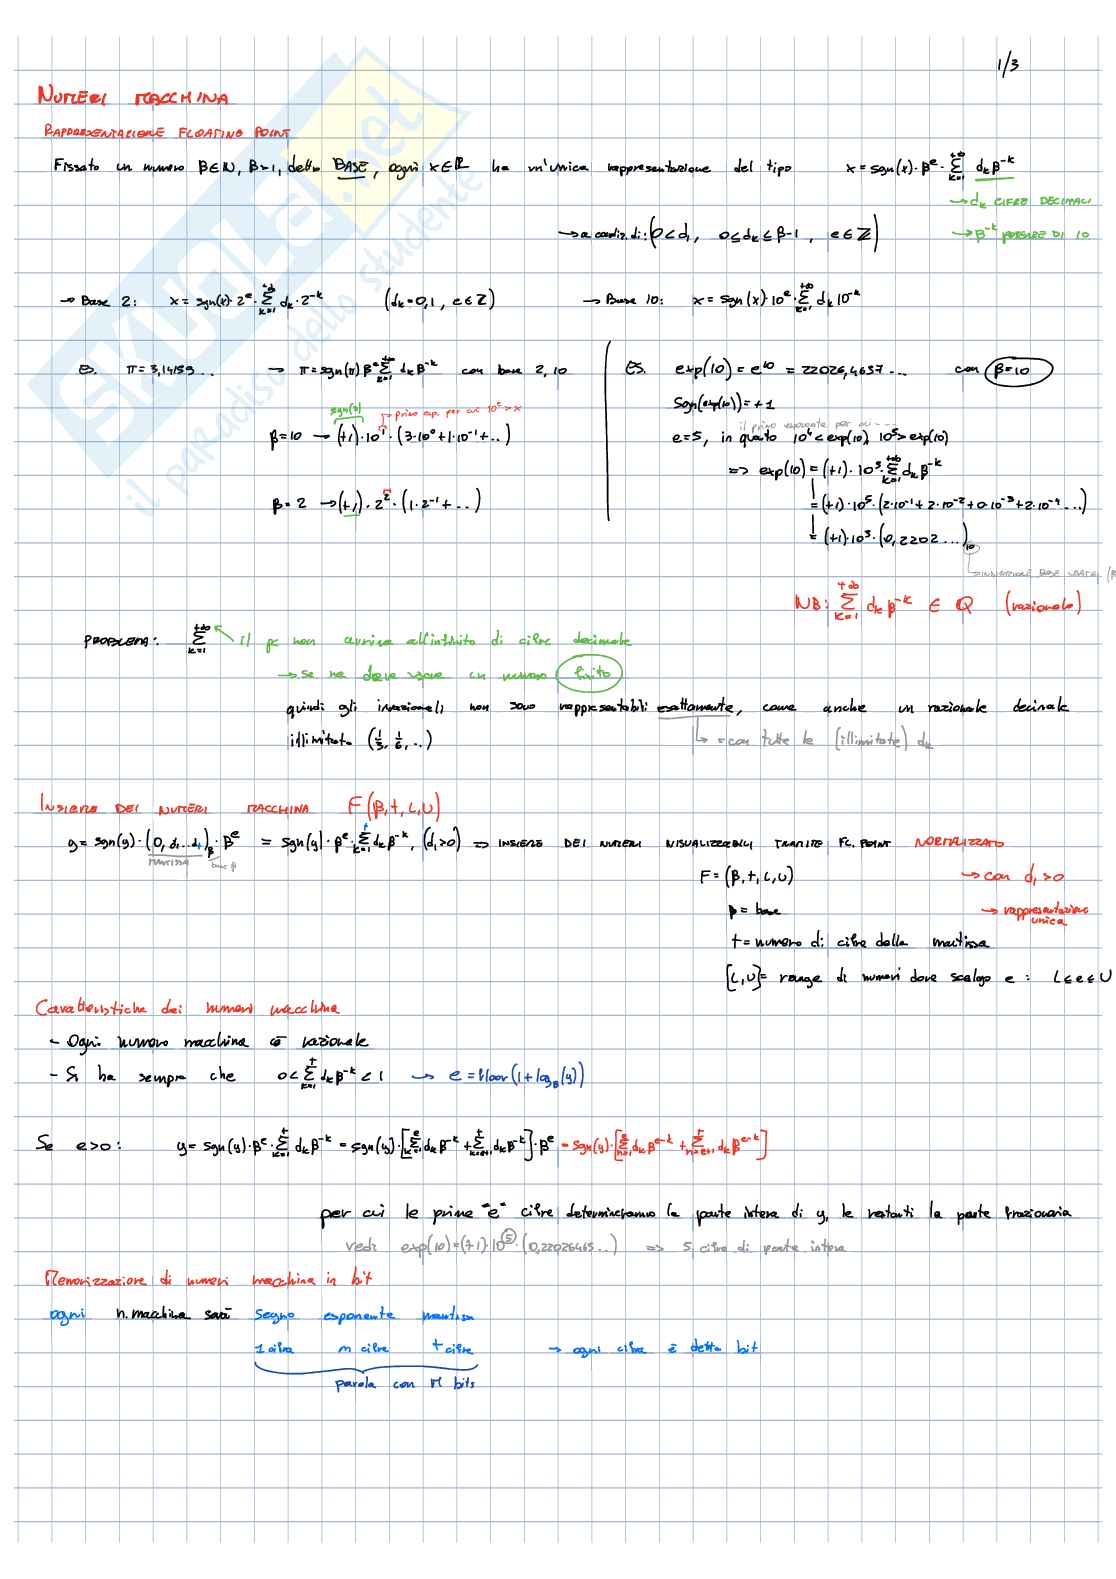 1/3
NUMERI MACCHINA
RAPPRESENTAZIONE FLOATING POINT
Fissato un numero β∈ℕ, β>1, detto BASE, ogni x∈ℝ ha un'unica rappresentazione del tipo x = sgn(x)·β^e·∑_{k=1}^{+∞} d_k β^{-k}
→ d_k CIFRE DECIMALI
→ a condiz. di: (0<d₁, 0≤d_k≤β-1, e∈ℤ)
→ β^{-k} POTENZE DI 10
→ Base 2: x = sgn(x)·2^e·∑_{k=1}^{+∞} d_k·2^{-k} (d_k=0,1, e∈ℤ)
→ Base 10: x = sgn(x)·10^e·∑_{k=1}^{+∞} d_k 10^{-k}
ES. π=3,14159... → π=sgn(π) β^e ∑_{k=1}^{+∞} d_k β^{-k} con base 2, 10
sgn(x)
→ primo esp. per cui 10^e > x
β=10 → (+1)·10^1·(3·10^0+1·10^{-1}+..)
β=2 → (+1)·2^2·(1·2^{-1}+..)
ES. exp(10) = e^{10} = 22026,4657... con β=10
sgn(exp(10)) = +1
il primo esponente per cui ---
e=5, in quanto 10^4<exp(10), 10^5>exp(10)
=> exp(10) = (+1)·10^5·∑_{k=1}^{+∞} d_k β^{-k}
= (+1)·10^5·(2·10^{-1}+2·10^{-2}+0·10^{-3}+2·10^{-4}...)
= (+1)·10^5·(0,2202...)_{10}
NB: ∑_{k=1}^{+∞} d_k β^{-k} ∈ ℚ (razionale)
PROBLEMA: ∑_{k=1}^{+∞} il pc non arriva all'infinito di cifre decimale
→ se ne deve usare un numero finito
quindi gli irrazionali non sono rappresentabili esattamente, come anche un razionale decimale
illimitato (1/3, 1/6, ..)
↳ = con tutte le (illimitate) d_k
INSIEME DEI NUMERI MACCHINA F(β,t,L,U)
y = sgn(y)·(0,d₁..d_t)_β·β^e = sgn(y)·β^e·∑_{k=1}^{t} d_k β^{-k}, (d₁>0) => INSIEME DEI NUMERI VISUALIZZABILI TRAMITE FL. POINT NORMALIZZATO
MANTISSA
base β
F=(β,t,L,U)
→ con d₁>0
β = base
→ rappresentazione unica
t = numero di cifre della mantissa
[L,U] = range di numeri dove scelgo e: L≤e≤U
Caratteristiche dei numeri macchina
- Ogni numero macchina è razionale
- Si ha sempre che 0<∑_{k=1}^{t} d_k β^{-k}<1 → e = floor(1+log_β(y))
Se e>0: y = sgn(y)·β^e·∑_{k=1}^{t} d_k β^{-k} = sgn(y)·[∑_{k=1}^{e} d_k β^{-k} + ∑_{k=e+1}^{t} d_k β^{-k}]·β^e = sgn(y)·[∑_{n=1}^{e} d_k β^{e-k} + ∑_{n=e+1}^{t} d_k β^{e-k}]
per cui le prime "e" cifre determineranno la parte intera di y, le restanti la parte frazionaria
vedi exp(10)=(+1)·10^5·(0,22026465..) => 5 cifre di parte intera
Memorizzazione di numeri macchina in bit
ogni n. macchina sarà segno esponente mantissa
1 cifra m cifre t cifre → ogni cifra è detta bit
parola con M bits
SKUOLA.net
il paradiso dello studente